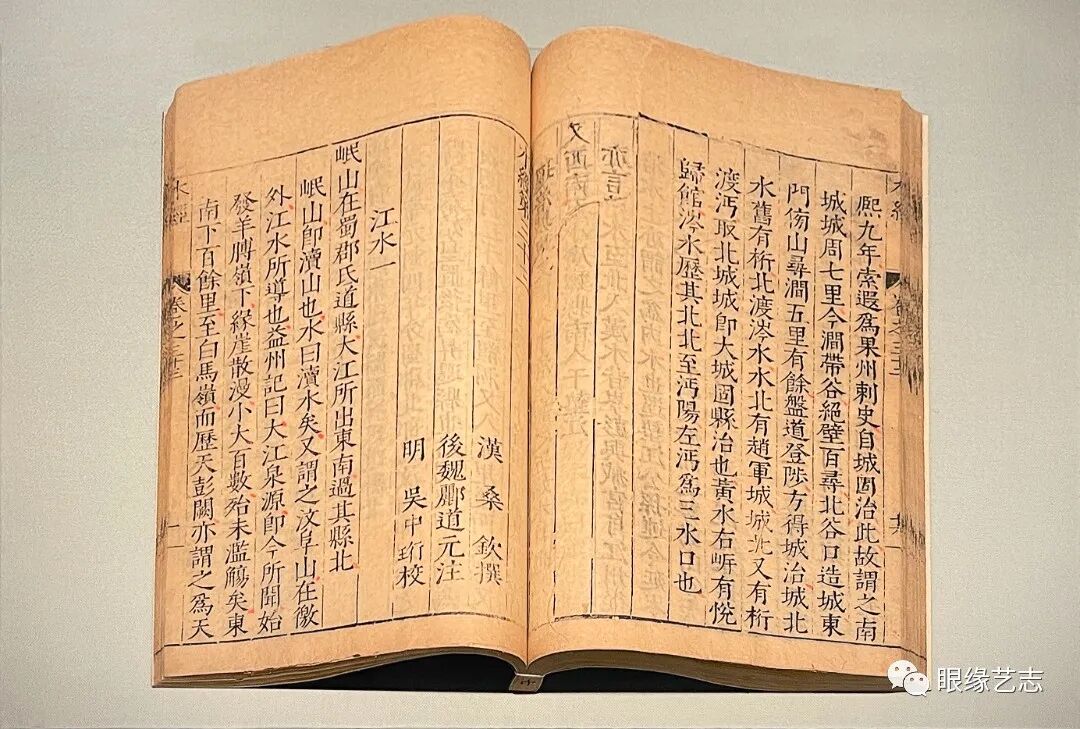 熙九年索遐爲果州刺史自城固治此故謂之南
城城周七里今澗帶谷絕壁百尋北谷口造城東
門傍山尋澗五里有餘盤道登陟方得城治城北
水舊有桁北渡涔水水北有趙軍城城北又有桁
渡沔取北城城即大城固縣治也黃水右岸有悅
歸館涔水歷其北北至沔陽左沔爲三水口也
漢 桑 欽撰
後魏酈道元注
明 吳中珩校
江水一
岷山在蜀郡氐道縣大江所出東南過其縣北
岷山卽瀆山也水曰瀆水矣又謂之汶阜山在徼
外江水所導也益州記曰大江泉源卽今所聞始
發羊膊嶺下緣崖散漫小大百數殆未濫觴矣東
南下百餘里至白馬嶺而歷天彭闕亦謂之爲天
水經
卷之三十三
一
眼缘艺志